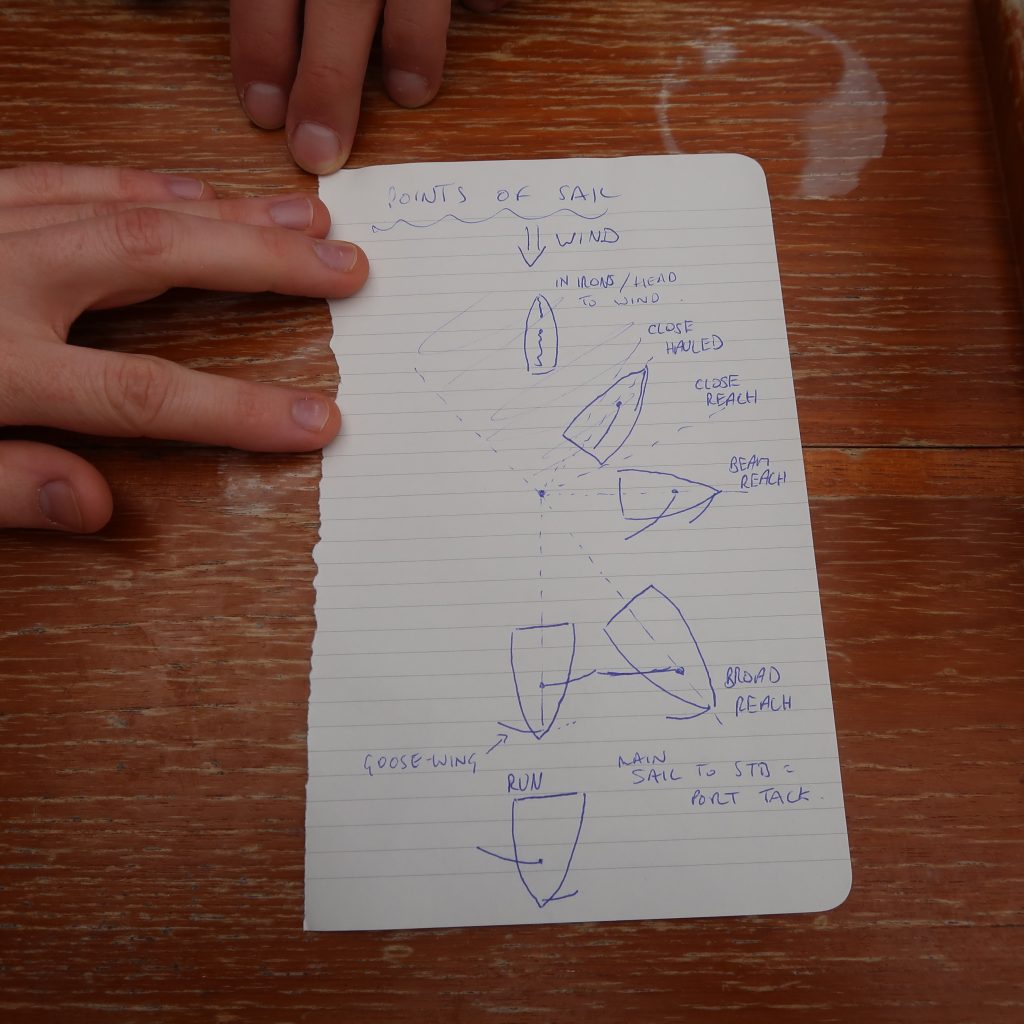 POINTS OF SAIL
WIND
IN IRONS/HEAD
TO WIND.
CLOSE
HAULED
CLOSE
REACH
BEAM
REACH
BROAD
REACH
GOOSE-WING
MAIN
SAIL TO STB =
PORT TACK.
RUN